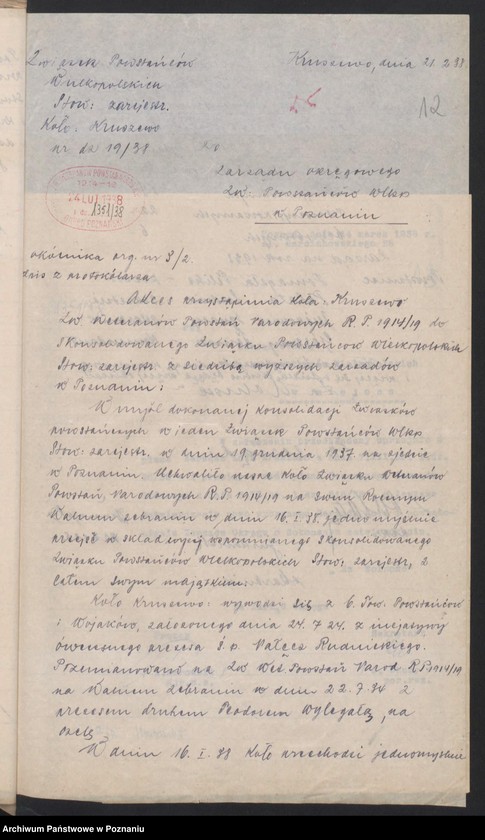 Związek Powstańców
Wielkopolskich
Stow: zarejestr.
Koło: Kruszewo
nr dz 19/38
Kruszewo, dnia 21.2.38.
12
Do
Zarządu okręgowego
Zw. Powstańców Wlkp
w Poznaniu
24 LUT 1938
1351/38
okólnika org. nr 3/2.
Odpis z protokólarza
Akces przystąpienia Koła: Kruszewo
Zw Weteranów Powstań Narodowych R.P. 1914/19 do
Skonsolidowanego Związku Powstańców Wielkopolskich
Stow: zarejestr. z siedzibą wyższych zarządów
w Poznaniu:
W myśl dokonanej Konsolidacji Związków
powstańczych w jeden Związek Powstańców Wlkp
Stow: zarejestr. w dniu 19 grudnia 1937. na zjeździe
w Poznaniu. Uchwaliło nasze Koło Związku Weteranów
Powstań, Narodowych R.P. 1914/19 na swym Rocznym
Walnem zebraniu w dniu 16. I. 38. jednomyślnie
przejść w skład wyżej wspomnianego Skonsolidowanego
Związku Powstańców Wielkopolskich Stow: zarejestr, z
całem swym majątkiem.
Koło Kruszewo: wywodzi się z b. Tow. Powstańców
i Wojaków, założonego dnia 24.7.24. z inicjatywy
ówczesnego prezesa ś.p. Rudnickiego.
Przemianowano na Zw Wet. Powstań Narod R.P. 1914/19
na Walnem zebraniu w dniu 22.7.34 z
prezesem druhem Teodorem Wylegałą, na
czele
W dniu 16. I. 38 Koło przechodzi jednomyślnie
Archiwum Państwowe w Poznaniu